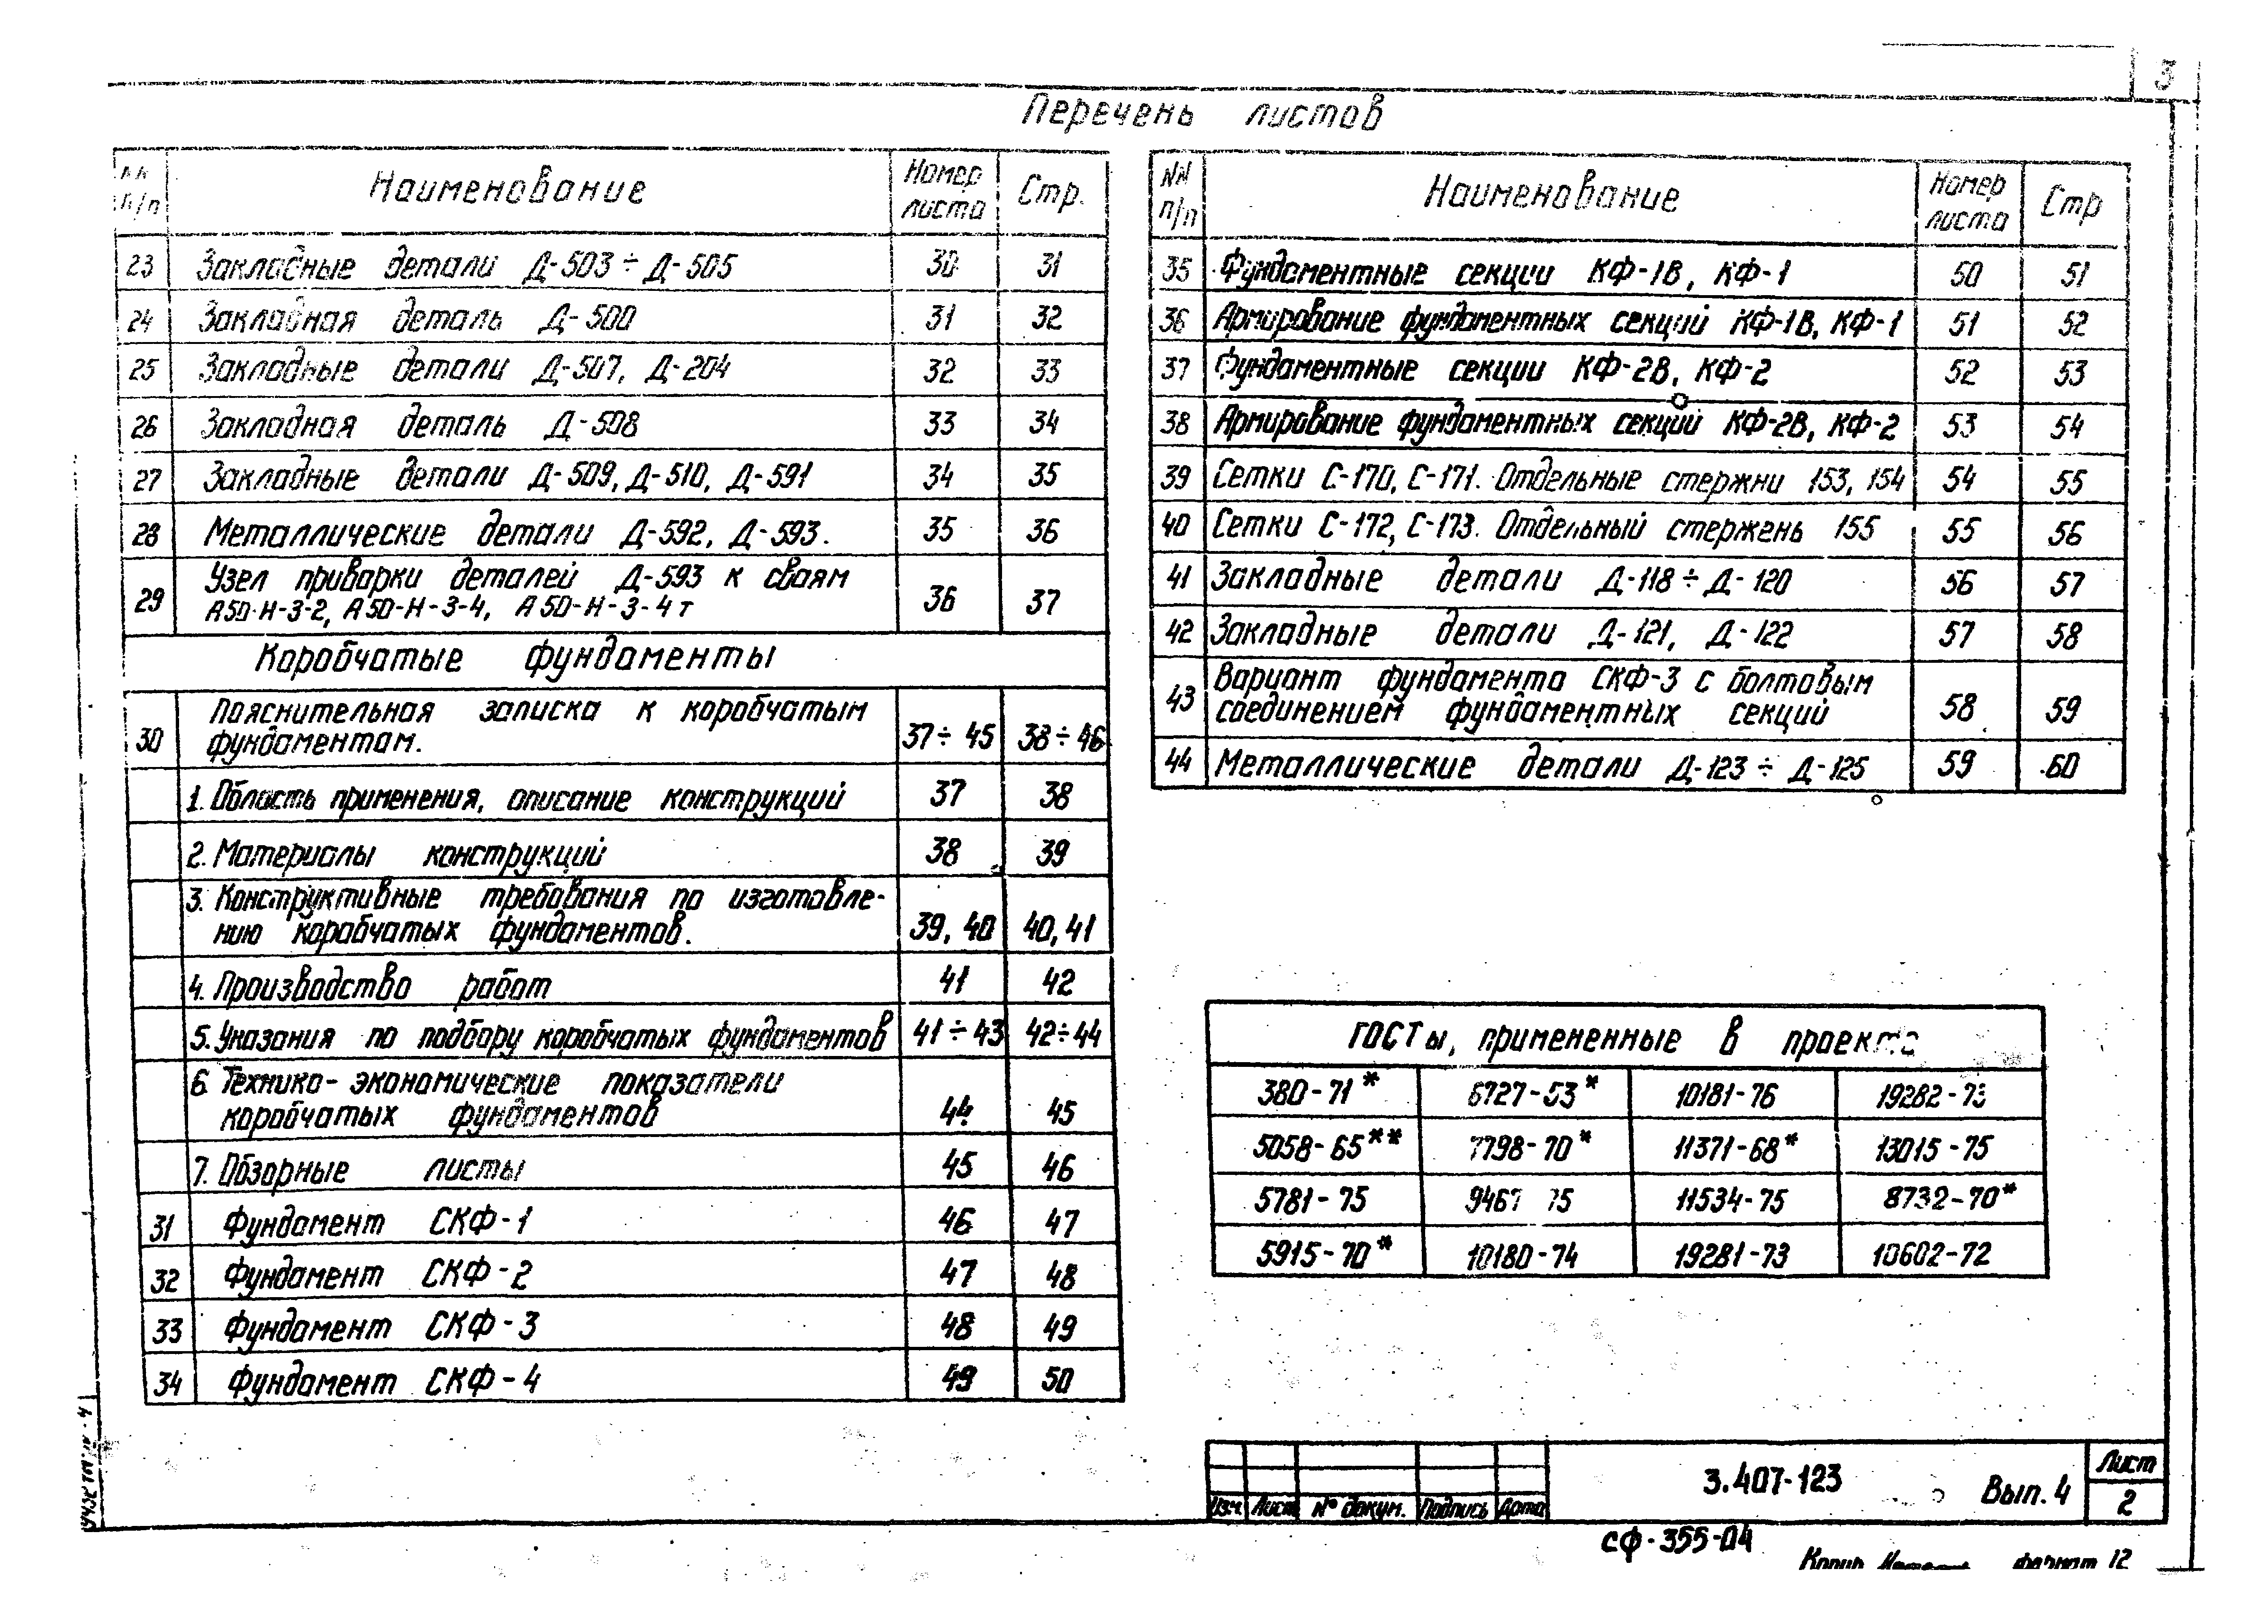 3
Перечень листов
п/п Наименование Номер листа Стр.
23 Закладные детали Д-503 ÷ Д-505 30 31
24 Закладная деталь Д-500 31 32
25 Закладные детали Д-507, Д-204 32 33
26 Закладная деталь Д-508 33 34
27 Закладные детали Д-509, Д-510, Д-591 34 35
28 Металлические детали Д-592, Д-593. 35 36
29 Узел приварки деталей Д-593 к сваям
А50-Н-3-2, А50-Н-3-4, А50-Н-3-4т 36 37
Коробчатые фундаменты
30 Пояснительная записка к коробчатым
фундаментам. 37÷45 38÷46
1. Область применения, описание конструкций 37 38
2. Материалы конструкций 38 39
3. Конструктивные требования по изготовле-
нию коробчатых фундаментов. 39, 40 40, 41
4. Производство работ 41 42
5. Указания по подбору коробчатых фундаментов 41÷43 42÷44
6. Технико-экономические показатели
коробчатых фундаментов 44 45
7. Обзорные листы 45 46
31 Фундамент СКФ-1 46 47
32 Фундамент СКФ-2 47 48
33 Фундамент СКФ-3 48 49
34 Фундамент СКФ-4 49 50
NN п/п Наименование Номер листа Стр
35 Фундаментные секции КФ-1В, КФ-1 50 51
36 Армирование фундаментных секций КФ-1В, КФ-1 51 52
37 Фундаментные секции КФ-2В, КФ-2 52 53
38 Армирование фундаментных секций КФ-2В, КФ-2 53 54
39 Сетки С-170, С-171. Отдельные стержни 153, 154 54 55
40 Сетки С-172, С-173. Отдельный стержень 155 55 56
41 Закладные детали Д-118 ÷ Д-120 56 57
42 Закладные детали Д-121, Д-122 57 58
43 Вариант фундамента СКФ-3 с болтовым
соединением фундаментных секций 58 59
44 Металлические детали Д-123 ÷ Д-125 59 60
ГОСТы, примененные в проекте
380-71* 6727-53* 10181-76 19282-73
5058-65** 7798-70* 11371-68* 13015-75
5781-75 9467 75 11534-75 8732-70*
5915-70* 10180-74 19281-73 10602-72
Изм. Лист № докум. Подпись Дата
3.407-123 Вып. 4
Лист
2
СФ-355-04
Копир формат 12